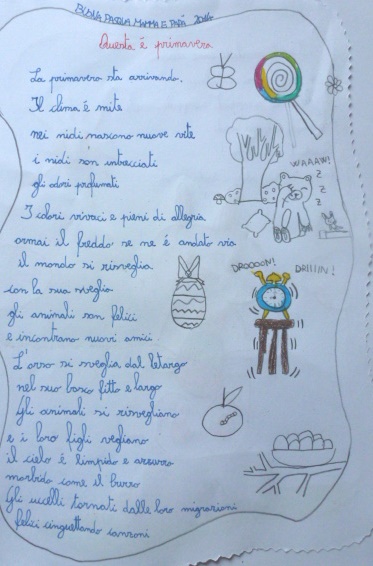 BUONA PASQUA MAMMA E PAPÀ 2016
Questa é primavera
La primavera sta arrivando.
Il clima é mite
nei nidi nascono nuove vite
i nidi son intrecciati
gli odori profumati
I colori vivaci e pieni di allegria
ormai il freddo se ne é andato via
il mondo si risveglia
con la sua sveglia
gli animali son felici
e incontrano nuovi amici
L'orso si sveglia dal letargo
nel suo bosco fitto e largo
Gli animali si risvegliano
e i loro figli vegliano
il cielo é limpido e azzurro
morbido come il burro
Gli uccelli tornati dalle loro migrazioni
felici cinguettando canzoni
WAAAW!
Z
Z
Z
DROOOON!
DRIIIIN!